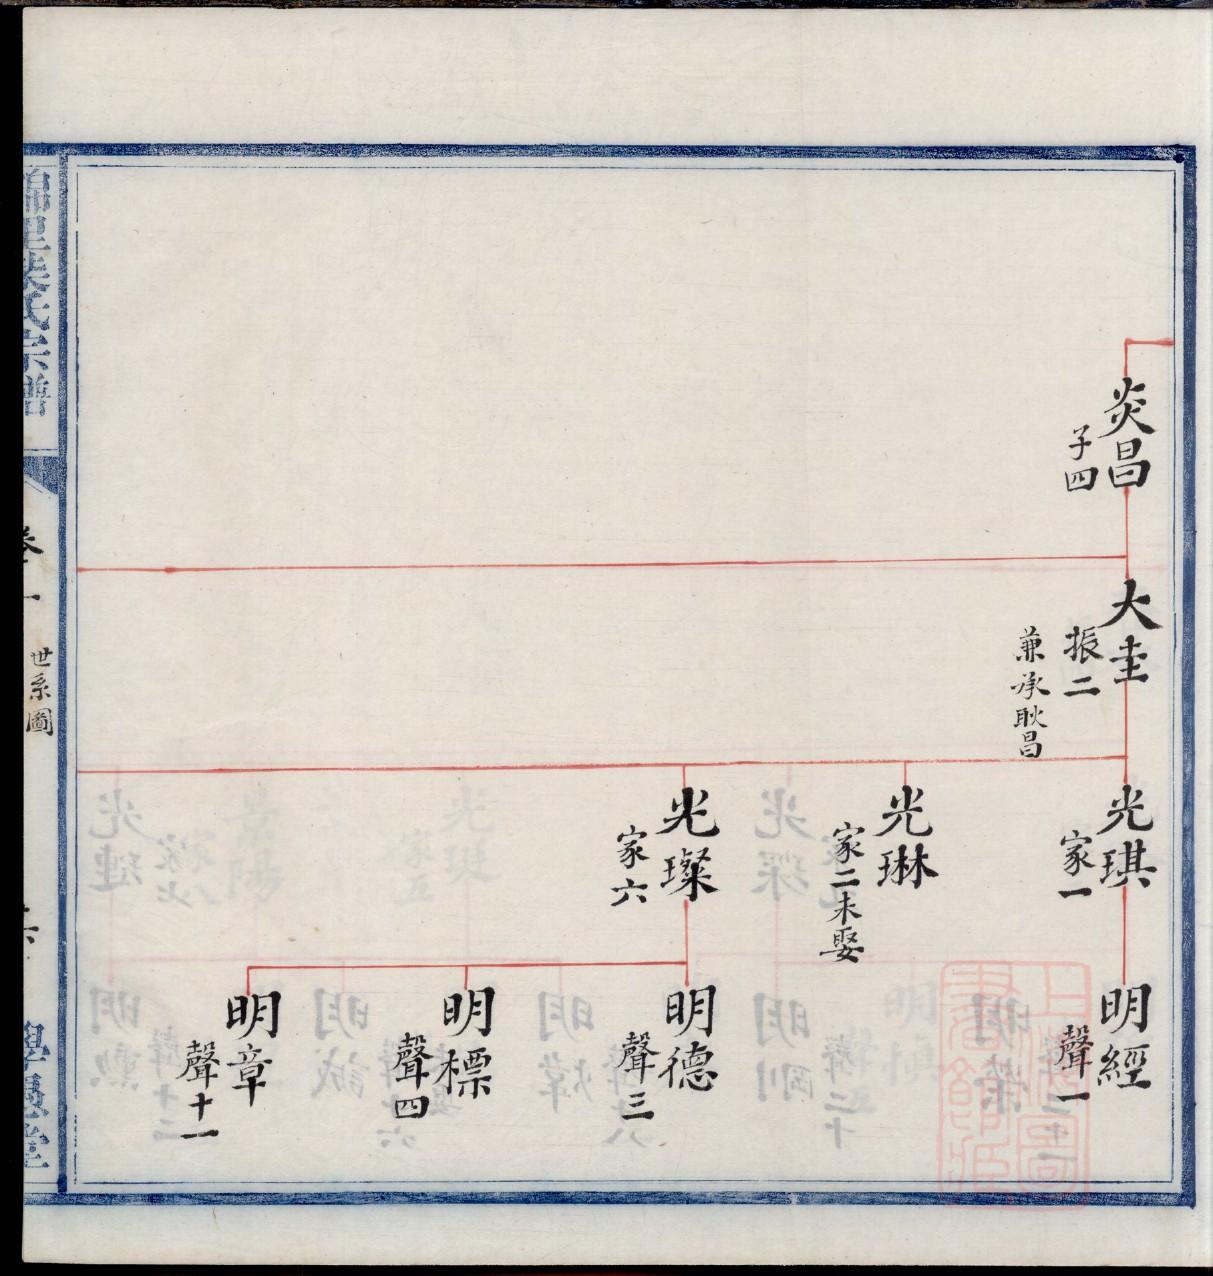 炎昌
子四
大圭
振二
兼承耿昌
光琪
家一
光琳
家二未娶
光璨
家六
明經
聲一
明德
聲三
明標
聲四
明章
聲十一
氏宗譜
卷一
世系圖